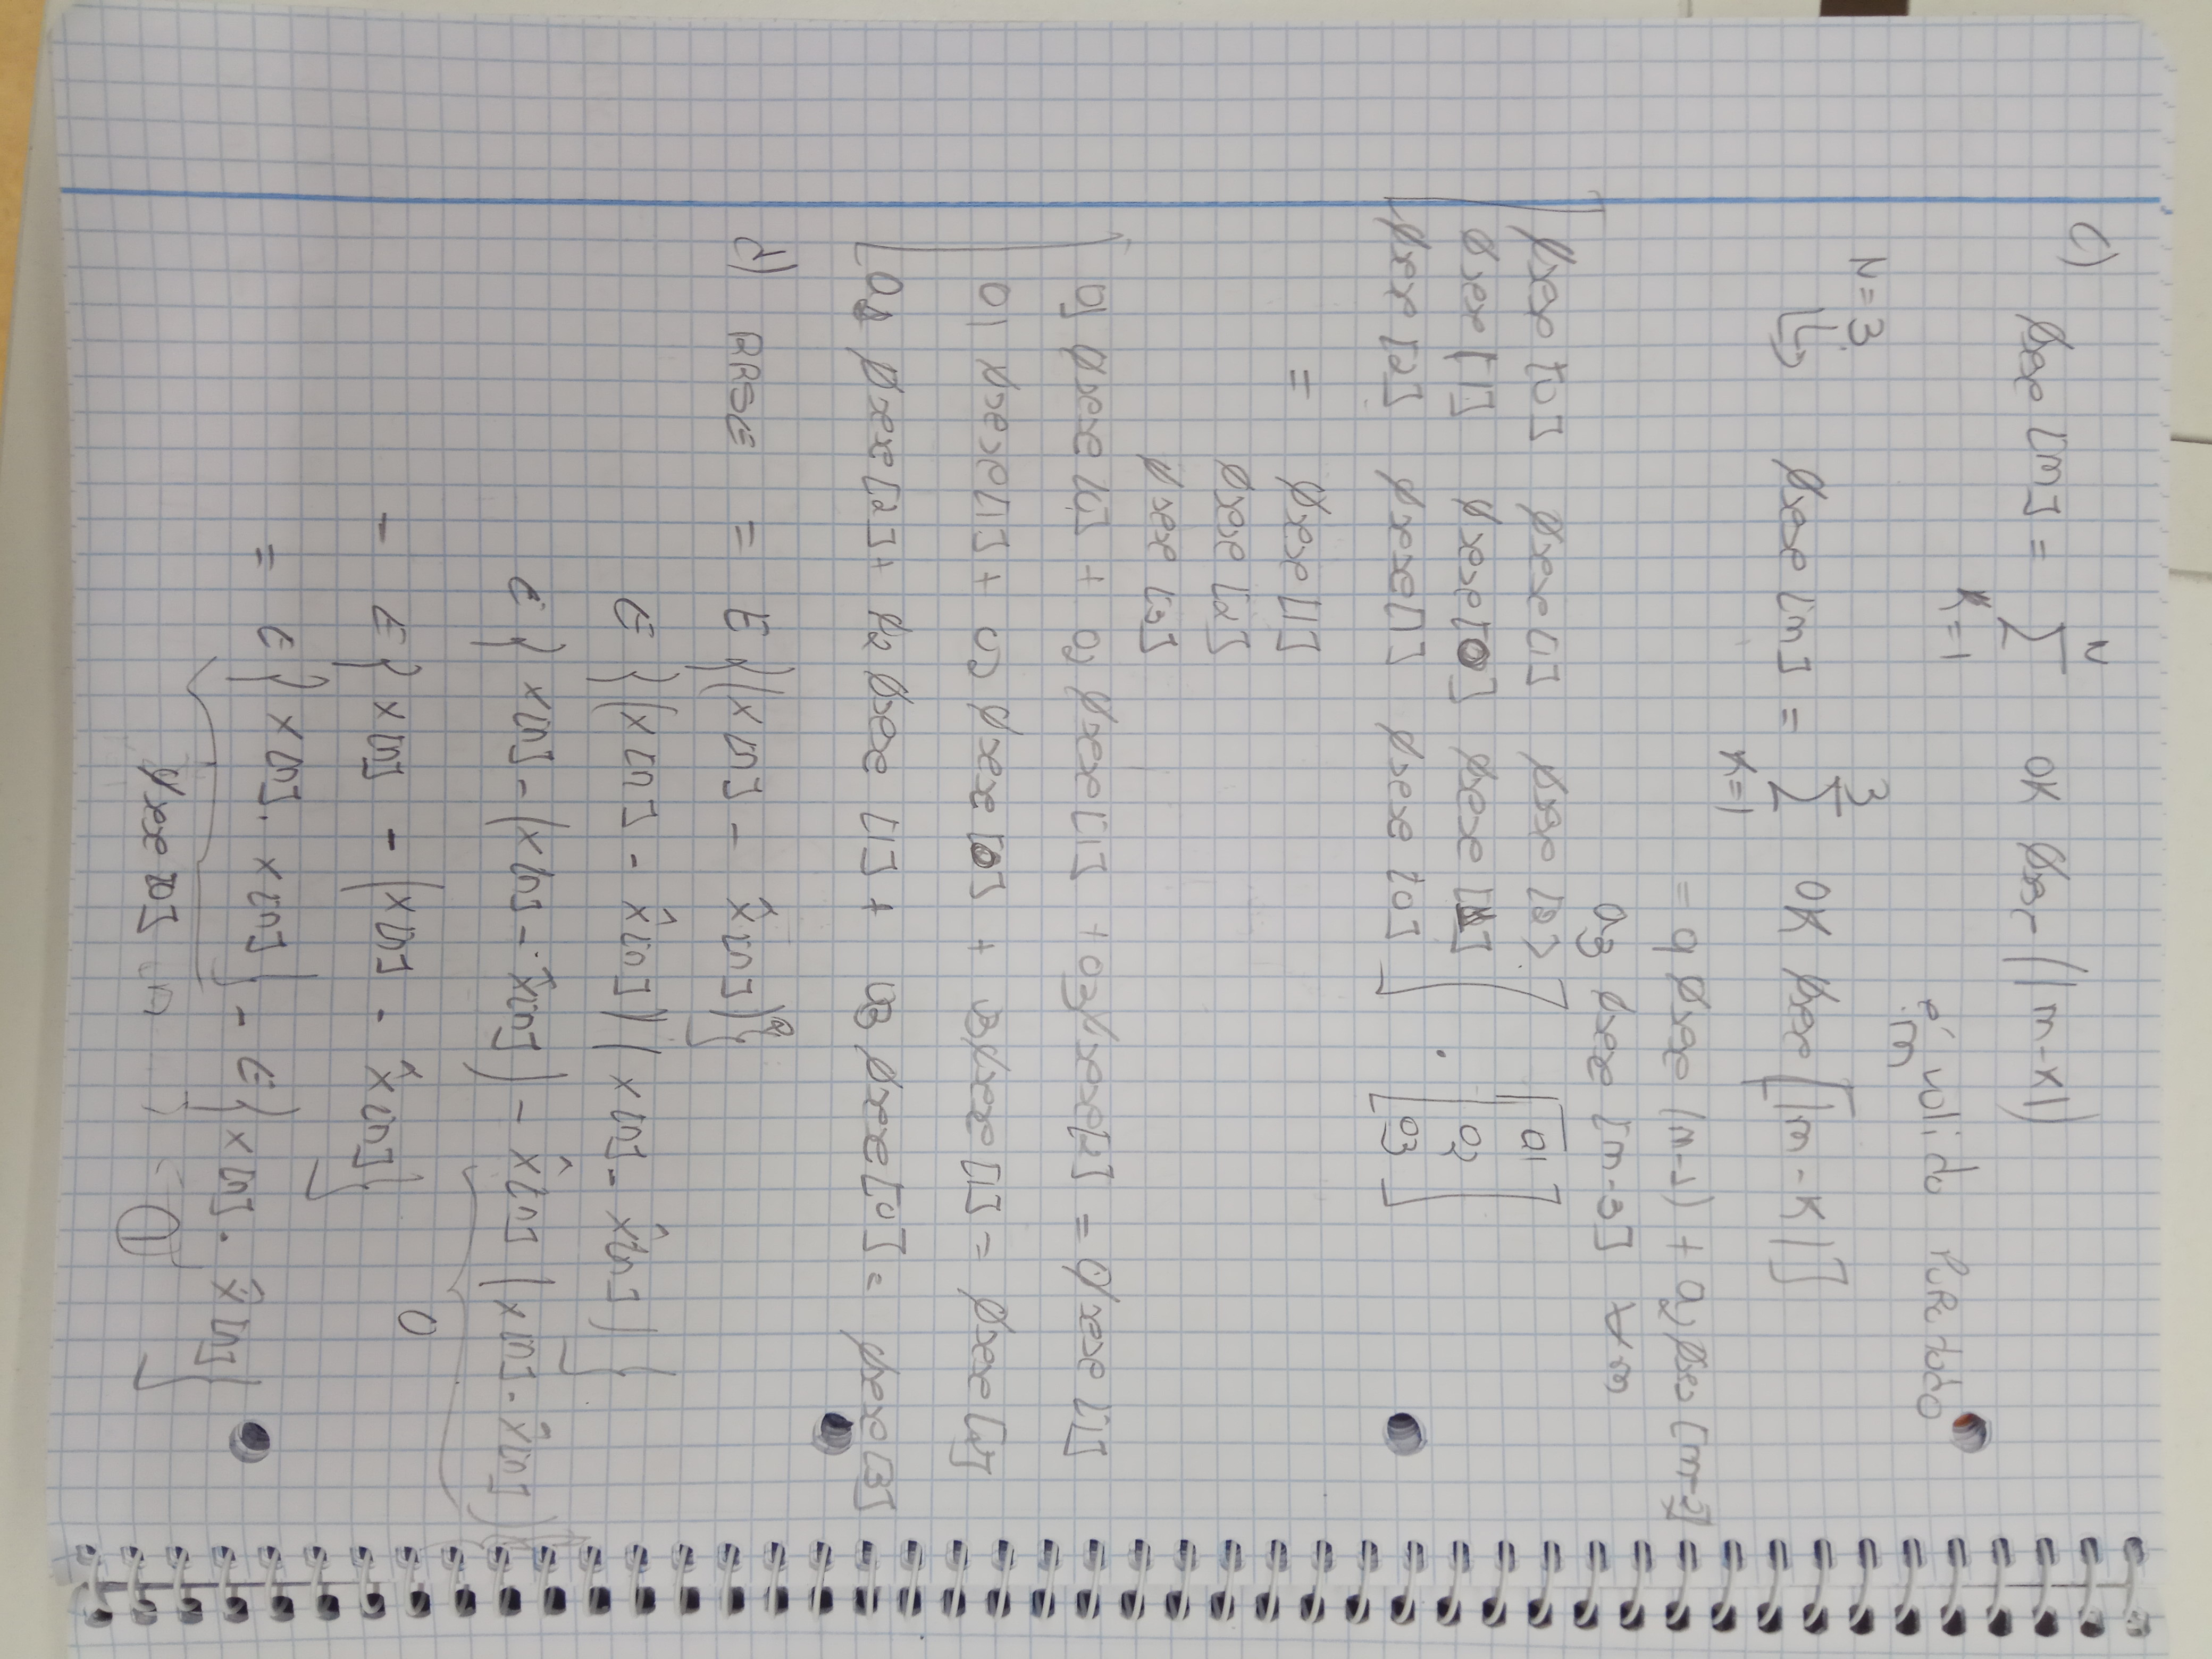 c)
N
φxx [m] = Σ ak φxx (|m-k|)
k=1
é válido para todo
m
N=3
3
↳ φxx [m] = Σ ak φxx [|m-k|]
k=1
= a1 φxx (m-1) + a2 φxx [m-2]
a3 φxx [m-3] ∀m
[ φxx [0] φxx [1] φxx [2] ] [ a1
φxx [1] φxx [0] φxx [1] · a2
φxx [2] φxx [1] φxx [0] ] a3 ]
= φxx [1]
φxx [2]
φxx [3]
a1 φxx [0] + a2 φxx [1] + a3 φxx [2] = φxx [1]
a1 φxx [1] + a2 φxx [0] + a3 φxx [1] = φxx [2]
a1 φxx [2] + a2 φxx [1] + a3 φxx [0] = φxx [3]
d) = E {(x[n] - x̂[n])²}
E {(x[n] - x̂[n]) (x[n] - x̂[n])}
E { x[n] - (x[n] - x̂[n]) - x̂[n] (x[n] - x̂[n])
0
- E { x[n] - (x[n] - x̂[n] }
= E { x[n] . x[n] } - E { x[n] . x̂[n] }
φxx [0] ①